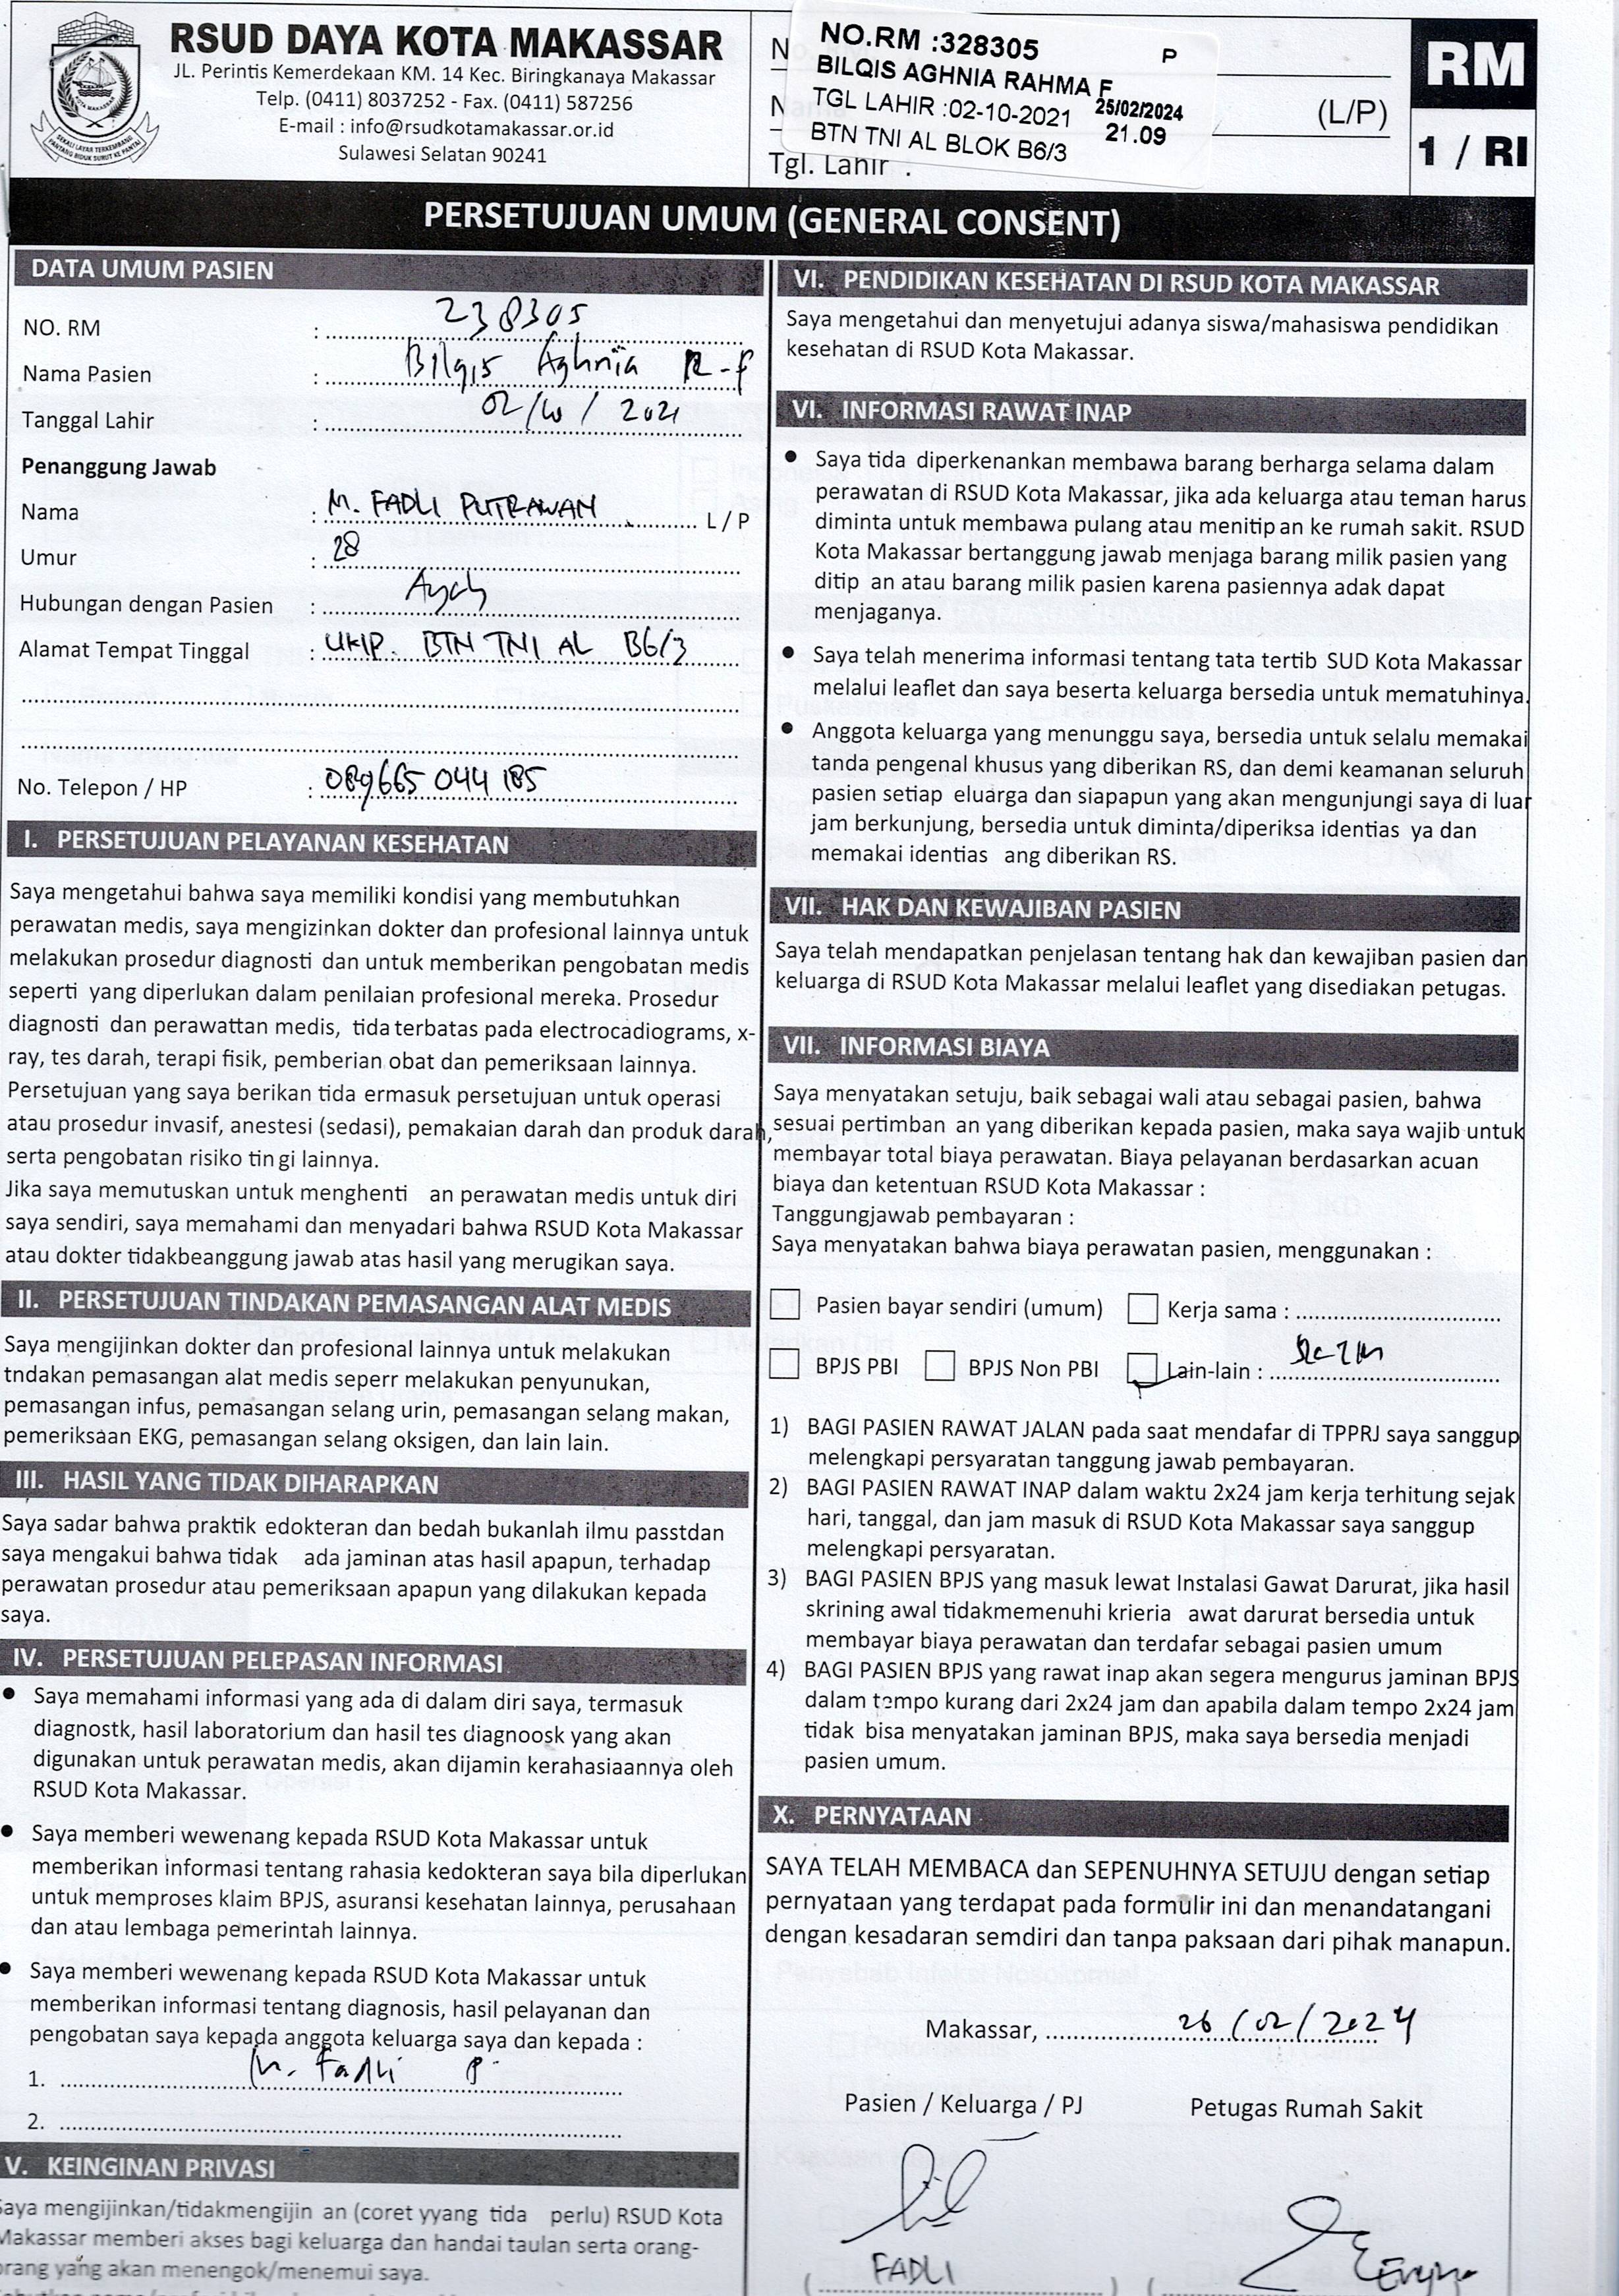 RSUD DAYA KOTA MAKASSAR
JL. Perintis Kemerdekaan KM. 14 Kec. Biringkanaya Makassar
Telp. (0411) 8037252 - Fax. (0411) 587256
E-mail : info@rsudkotamakassar.or.id
Sulawesi Selatan 90241
NO.RM :328305 P
BILQIS AGHNIA RAHMA F
TGL LAHIR :02-10-2021 25/02/2024
BTN TNI AL BLOK B6/3 21.09
Tgl. Lahir :
(L/P)
RM
1 / RI
PERSETUJUAN UMUM (GENERAL CONSENT)
DATA UMUM PASIEN
NO. RM : 238305
Nama Pasien : Bilqis Aghnia R-F
Tanggal Lahir : 02/10/2021
Penanggung Jawab
Nama : M. FADLI PUTRAWAN L / P
Umur : 28
Hubungan dengan Pasien : Ayah
Alamat Tempat Tinggal : UKIP. BTN TNI AL B6/3
No. Telepon / HP : 089665 044 185
I. PERSETUJUAN PELAYANAN KESEHATAN
Saya mengetahui bahwa saya memiliki kondisi yang membutuhkan
perawatan medis, saya mengizinkan dokter dan profesional lainnya untuk
melakukan prosedur diagnosti dan untuk memberikan pengobatan medis
seperti yang diperlukan dalam penilaian profesional mereka. Prosedur
diagnosti dan perawattan medis, tida terbatas pada electrocadiograms, x-
ray, tes darah, terapi fisik, pemberian obat dan pemeriksaan lainnya.
Persetujuan yang saya berikan tida ermasuk persetujuan untuk operasi
atau prosedur invasif, anestesi (sedasi), pemakaian darah dan produk darah,
serta pengobatan risiko tin gi lainnya.
Jika saya memutuskan untuk menghenti an perawatan medis untuk diri
saya sendiri, saya memahami dan menyadari bahwa RSUD Kota Makassar
atau dokter tidakbeanggung jawab atas hasil yang merugikan saya.
II. PERSETUJUAN TINDAKAN PEMASANGAN ALAT MEDIS
Saya mengijinkan dokter dan profesional lainnya untuk melakukan
tndakan pemasangan alat medis seperr melakukan penyunukan,
pemasangan infus, pemasangan selang urin, pemasangan selang makan,
pemeriksaan EKG, pemasangan selang oksigen, dan lain lain.
III. HASIL YANG TIDAK DIHARAPKAN
Saya sadar bahwa praktik edokteran dan bedah bukanlah ilmu passtdan
saya mengakui bahwa tidak ada jaminan atas hasil apapun, terhadap
perawatan prosedur atau pemeriksaan apapun yang dilakukan kepada
saya.
IV. PERSETUJUAN PELEPASAN INFORMASI
● Saya memahami informasi yang ada di dalam diri saya, termasuk
diagnostk, hasil laboratorium dan hasil tes diagnoosk yang akan
digunakan untuk perawatan medis, akan dijamin kerahasiaannya oleh
RSUD Kota Makassar.
● Saya memberi wewenang kepada RSUD Kota Makassar untuk
memberikan informasi tentang rahasia kedokteran saya bila diperlukan
untuk memproses klaim BPJS, asuransi kesehatan lainnya, perusahaan
dan atau lembaga pemerintah lainnya.
● Saya memberi wewenang kepada RSUD Kota Makassar untuk
memberikan informasi tentang diagnosis, hasil pelayanan dan
pengobatan saya kepada anggota keluarga saya dan kepada :
1. M. Fadli P
2.
V. KEINGINAN PRIVASI
Saya mengijinkan/tidakmengijin an (coret yyang tida perlu) RSUD Kota
Makassar memberi akses bagi keluarga dan handai taulan serta orang-
orang yang akan menengok/menemui saya.
VI. PENDIDIKAN KESEHATAN DI RSUD KOTA MAKASSAR
Saya mengetahui dan menyetujui adanya siswa/mahasiswa pendidikan
kesehatan di RSUD Kota Makassar.
VI. INFORMASI RAWAT INAP
● Saya tida diperkenankan membawa barang berharga selama dalam
perawatan di RSUD Kota Makassar, jika ada keluarga atau teman harus
diminta untuk membawa pulang atau menitip an ke rumah sakit. RSUD
Kota Makassar bertanggung jawab menjaga barang milik pasien yang
ditip an atau barang milik pasien karena pasiennya adak dapat
menjaganya.
● Saya telah menerima informasi tentang tata tertib SUD Kota Makassar
melalui leaflet dan saya beserta keluarga bersedia untuk mematuhinya.
● Anggota keluarga yang menunggu saya, bersedia untuk selalu memakai
tanda pengenal khusus yang diberikan RS, dan demi keamanan seluruh
pasien setiap eluarga dan siapapun yang akan mengunjungi saya di luar
jam berkunjung, bersedia untuk diminta/diperiksa identias ya dan
memakai identias ang diberikan RS.
VII. HAK DAN KEWAJIBAN PASIEN
Saya telah mendapatkan penjelasan tentang hak dan kewajiban pasien dan
keluarga di RSUD Kota Makassar melalui leaflet yang disediakan petugas.
VII. INFORMASI BIAYA
Saya menyatakan setuju, baik sebagai wali atau sebagai pasien, bahwa
sesuai pertimban an yang diberikan kepada pasien, maka saya wajib untuk
membayar total biaya perawatan. Biaya pelayanan berdasarkan acuan
biaya dan ketentuan RSUD Kota Makassar :
Tanggungjawab pembayaran :
Saya menyatakan bahwa biaya perawatan pasien, menggunakan :
Pasien bayar sendiri (umum) Kerja sama :
BPJS PBI BPJS Non PBI Lain-lain :
1) BAGI PASIEN RAWAT JALAN pada saat mendafar di TPPRJ saya sanggup
melengkapi persyaratan tanggung jawab pembayaran.
2) BAGI PASIEN RAWAT INAP dalam waktu 2x24 jam kerja terhitung sejak
hari, tanggal, dan jam masuk di RSUD Kota Makassar saya sanggup
melengkapi persyaratan.
3) BAGI PASIEN BPJS yang masuk lewat Instalasi Gawat Darurat, jika hasil
skrining awal tidakmemenuhi krieria awat darurat bersedia untuk
membayar biaya perawatan dan terdafar sebagai pasien umum
4) BAGI PASIEN BPJS yang rawat inap akan segera mengurus jaminan BPJS
dalam tempo kurang dari 2x24 jam dan apabila dalam tempo 2x24 jam
tidak bisa menyatakan jaminan BPJS, maka saya bersedia menjadi
pasien umum.
X. PERNYATAAN
SAYA TELAH MEMBACA dan SEPENUHNYA SETUJU dengan setiap
pernyataan yang terdapat pada formulir ini dan menandatangani
dengan kesadaran semdiri dan tanpa paksaan dari pihak manapun.
Makassar, 26/02/2024
Pasien / Keluarga / PJ Petugas Rumah Sakit
FADLI